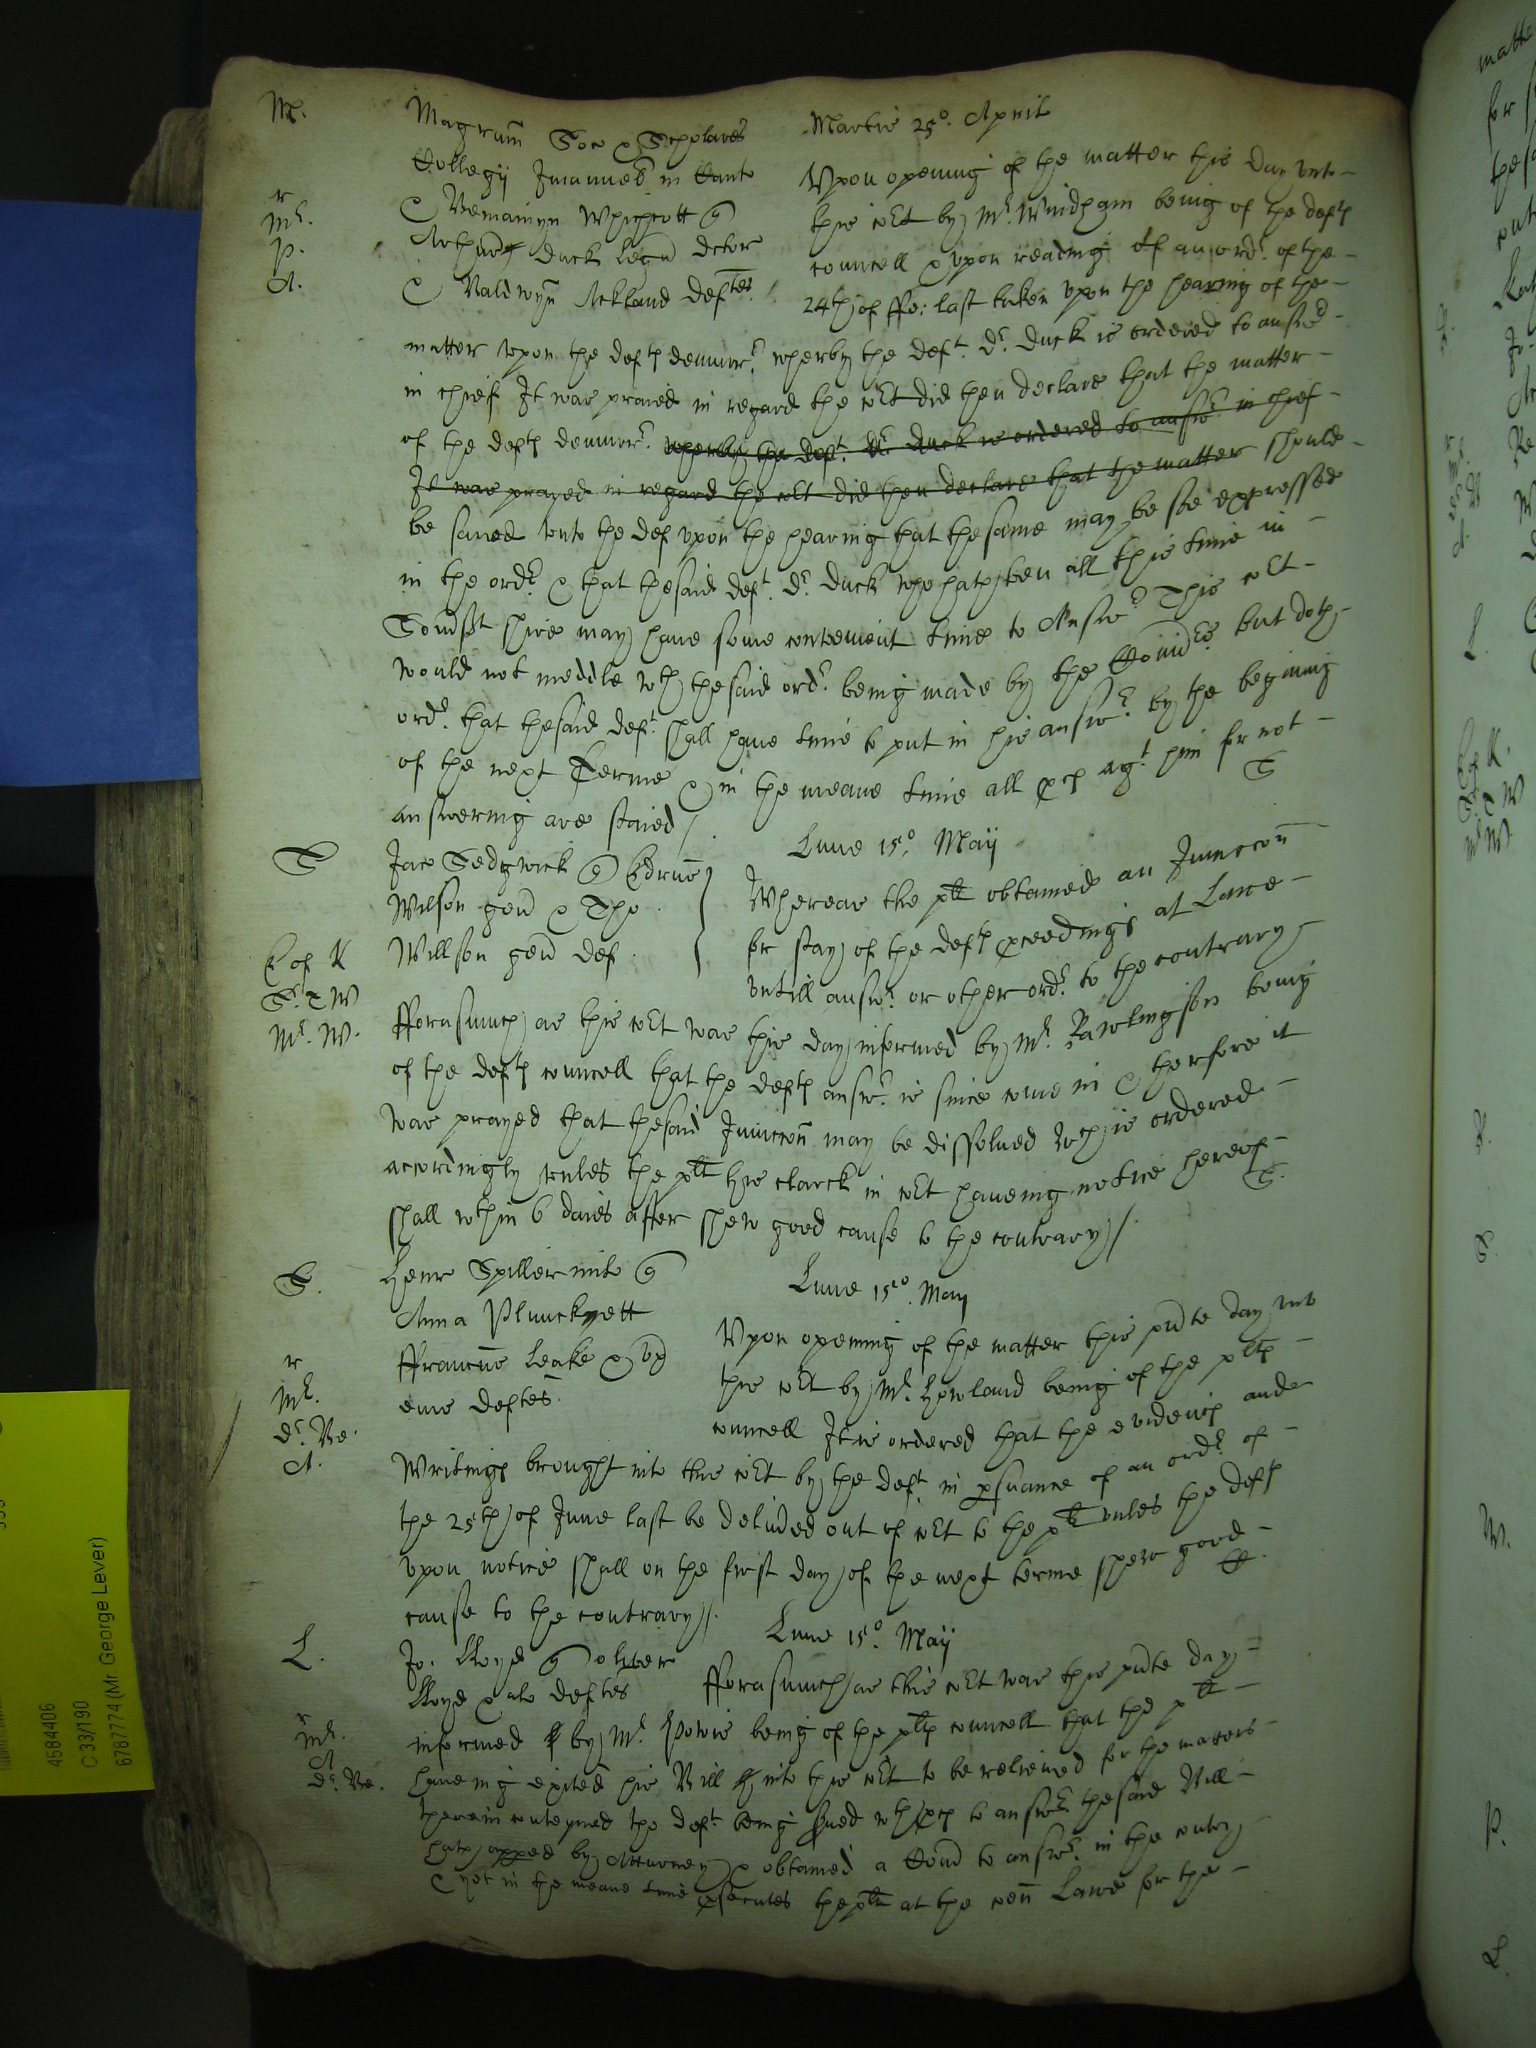 M.
Magrum Soc & Scholares
Collegij Imanuel in Cant
& Beniamyn Whichcott
Arthur Duck legu dctor
& Baldwyn Ackland deftes
r
Mr.
p.
A.
Martis 25o. April
Upon opening of the matter this day unto
this Ct by Mr. Windham being of the defts
councell & upon reading of an ordr. of the
24th of ffe: last taken upon the hearing of the
matter upon the defts demurr. wherby the deft. Dr. Duck is ordered to answ
in chief It was praied in regard the Ct did then declare that the matter
of the defts demurr. wherby the deft. Dr. Duck is ordered to answr in chief
It was prayed in regard the Ct did then declare that the matter should
be saved unto the def upon the hearing that the same may be soe expressed
in the ordr. & that the said deft. Dr. Duck who hath been all this time in
Somst shire may have some convenient time to Answr. This Ct
would not meddle wth the said ordr. being made by the Comrs but doth
ordr. that the said deft. shall have time to put in his answr. by the begining
of the next Terme & in the meane time all pcs agt. him for not
answering are staied /.
S
S
Jac Sedgwick Edrus
Wilson gen & Tho
Willson gen def.
E of K
Sr. T W
Mr. W.
Lune 15o. Maij
Whereas the plt obtained an Iniuccon
for stay of the defts pceedings at Lawe
untill answr. or other ordr. to the contrary
fforasmuch as this Ct was this day informed by Mr. Rawlingson being
of the defts councell that the defts answr. is since come in & therfore it
was prayed that the said Iniuccon may be dissolved wch is ordered
accordingly unles the plt his clarck in Ct haveing notice hereof
shall wthin 6 daies after shew good cause to the contrary /.
S.
S.
Henr Spiller milt
Anna Plunckyett
ffrancus Leake & ux
eius deftes.
r
Mr.
dr. Be.
A.
Lune 15o. May
Upon opening of the matter this pnte day unto
this Ct by Mr. Howland being of the plts
councell It is ordered that the evidencs and
Writings brought into this Ct by the deft. in psuance of an ordr. of
the 25th of June last be delived out of Ct to the plt unles the defts
upon notice shall on the first day of the next terme shew good
cause to the contrary /.
L.
Jo. Lloyd Oliver
Lloyd & alo deftes
r
Mr.
A
dr. Be.
Lune 15o. Maij
fforasmuch as this Ct was this pnte day
informed by Mr. Powis being of the plts councell that the plt
haveing exited his Bill into this Ct to be relieved for the matters
therein conteyned the deft. being sued wth pcs to answr. the said Bill
hath apped by Atturney & obtained a Com to answr. in the contry
& yet in the meane time psecutes the plt at the Cen Lawe for the
4584406
C 33/190
6787774 (Mr. George Lever)